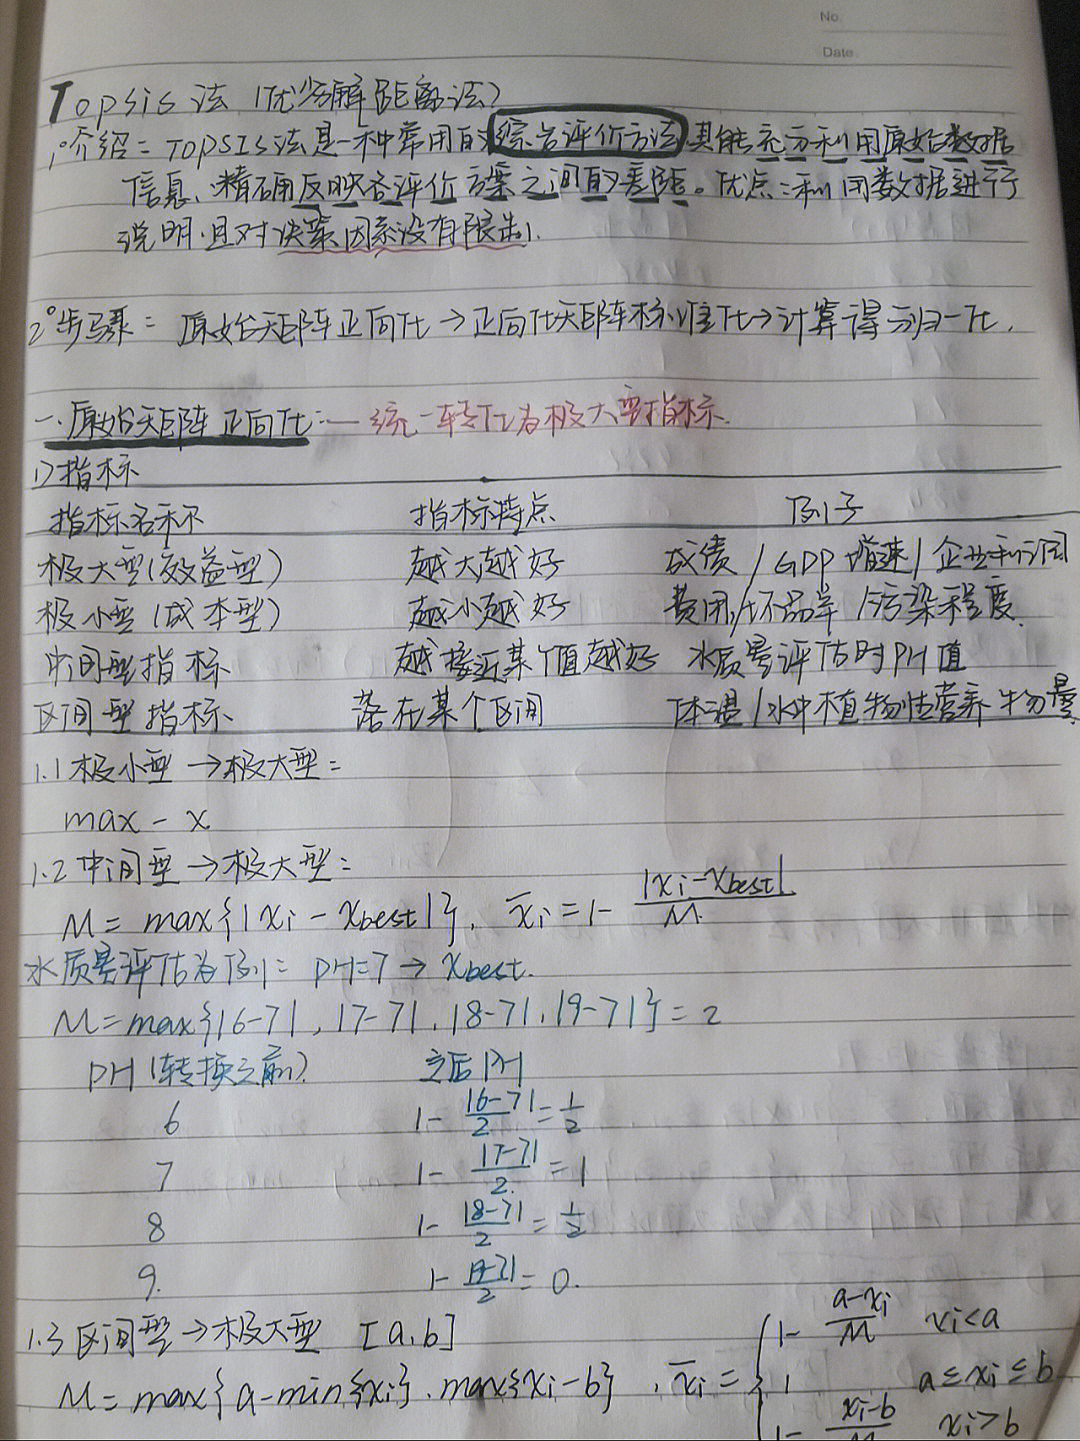 No.
Date
Topsis法（优劣解距离法）
1°介绍：TOPSIS法是一种常用的综合评价方法，其能充分利用原始数据
信息，精确反映各评价方案之间的差距。优点：利用数据进行
说明，且对决策因素没有限制.
2°步骤：原始矩阵正向化→正向化矩阵标准化→计算得分归一化.
一.原始矩阵正向化：—统一转化为极大型指标.
1)指标
指标名称 指标特点 例子
极大型(效益型) 越大越好 成绩/GDP增速/企业利润
极小型(成本型) 越小越好 费用/坏品率/污染程度
中间型指标 越接近某个值越好 水质量评估时PH值
区间型指标 落在某个区间 体温/水中植物性营养物量
1.1极小型→极大型：
max - x
1.2中间型→极大型：
M = max{|xi - xbest|}, x̄i = 1 - |xi-xbest|/M
水质量评估为例：PH=7→xbest.
M=max{|6-7|,|7-7|,|8-7|,|9-7|}=2
PH(转换之前) 之后PH
6 1- |6-7|/2 = 1/2
7 1- |7-7|/2 = 1
8 1- |8-7|/2 = 1/2
9. 1- |9-7|/2 = 0.
1.3区间型→极大型 [a,b]
M = max{a-min{xi}, max{xi-b}, x̄i = { 1- a-xi/M xi<a
1 a≤xi≤b
1- xi-b/M xi>b